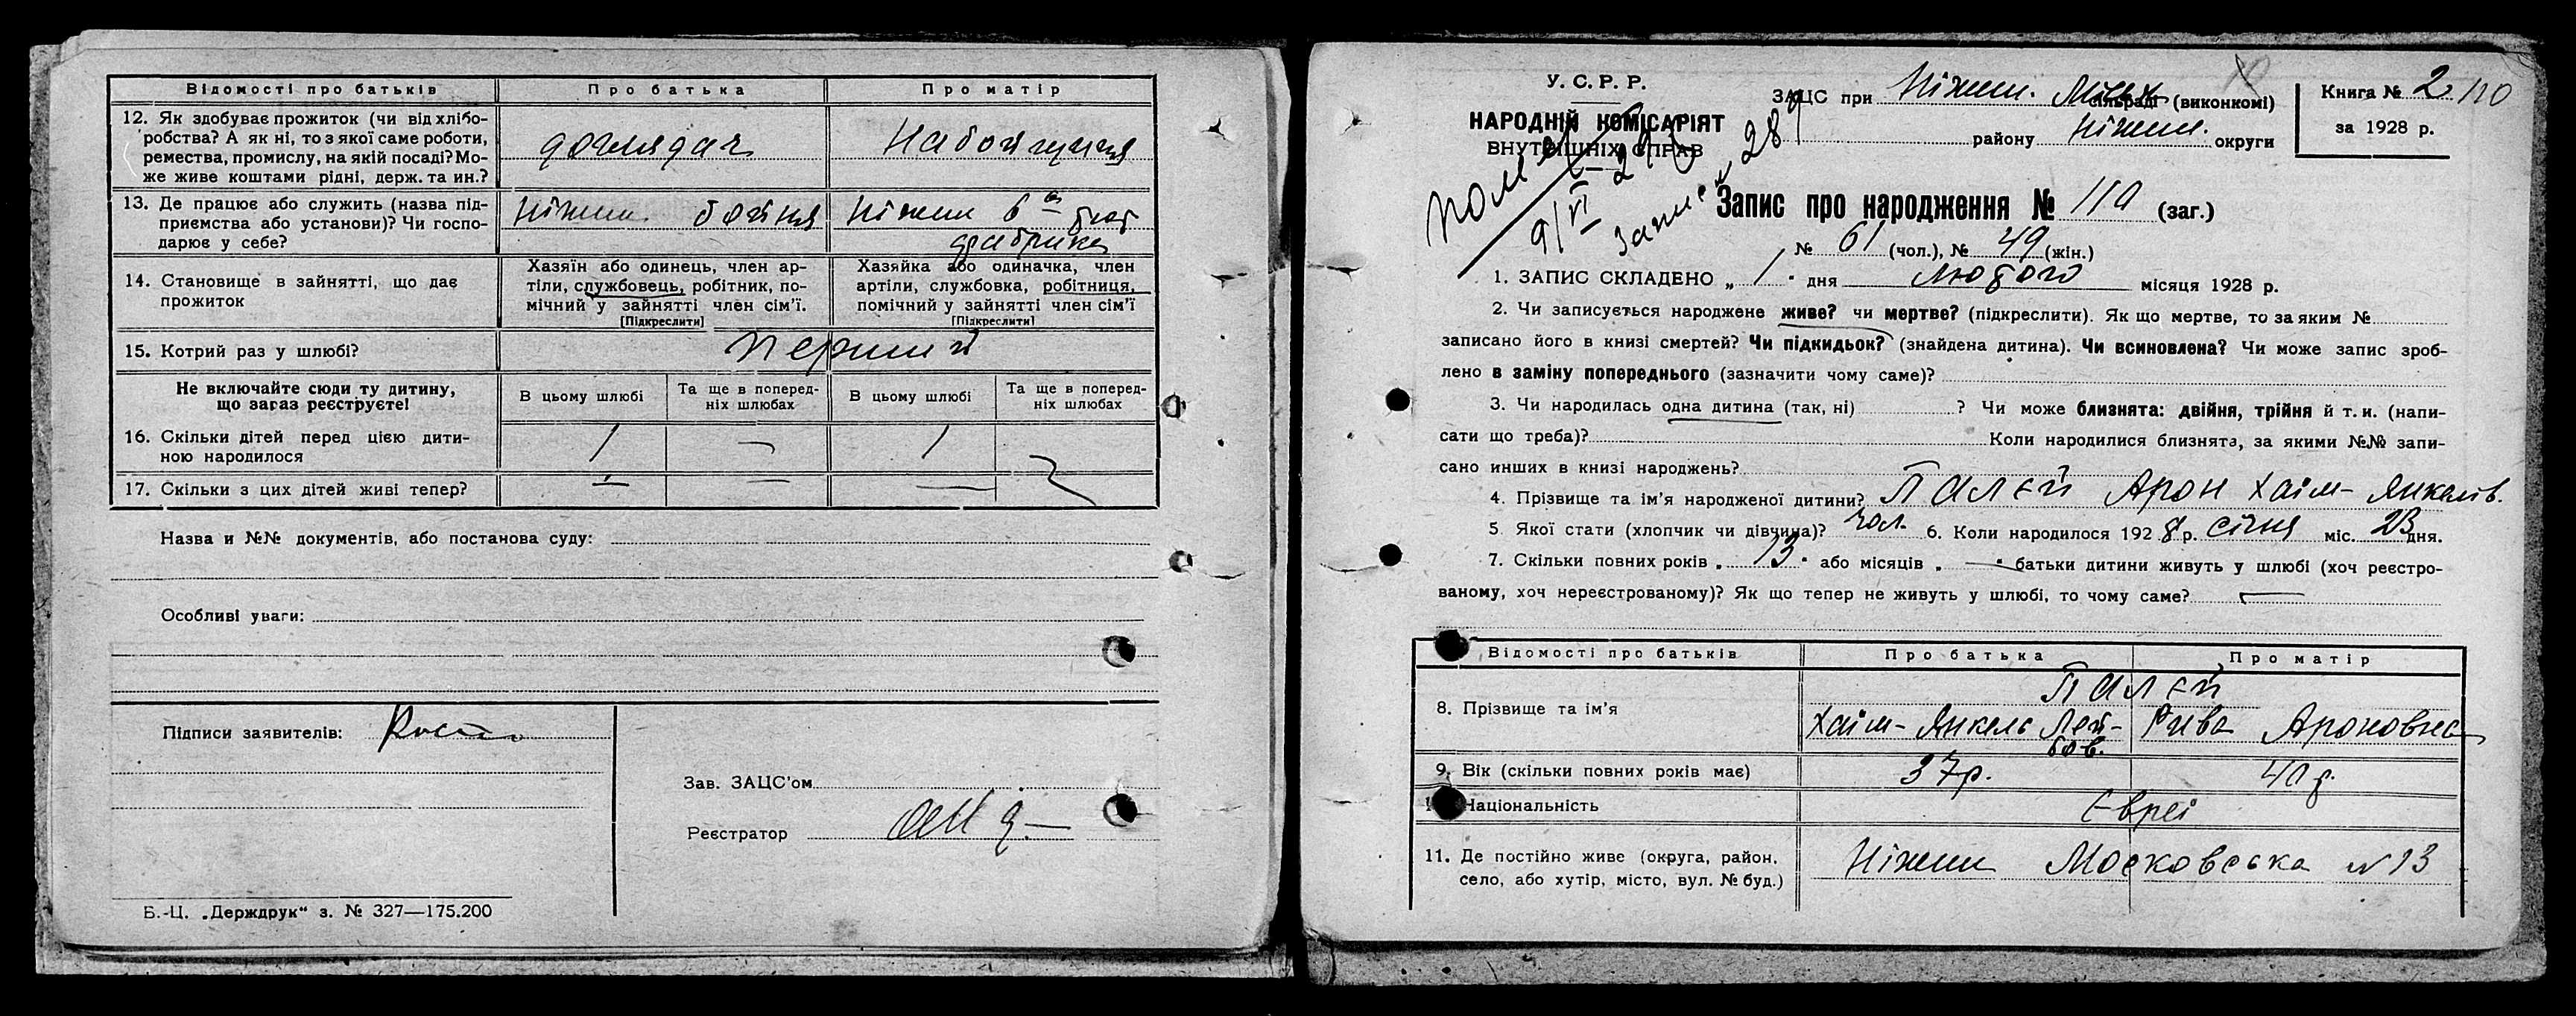 Відомості про батьків Про батька Про матір
12. Як здобуває прожиток (чи від хлібо-
робства? А як ні, то з якої саме роботи,
ремества, промислу, на якій посаді? Мо-
же живе коштами рідні, держ. та ин.?
доглядач
13. Де працює або служить (назва під-
приємства або установи)? Чи госпо-
дарює у себе?
Ніжин. бойня
Ніжин 6
фабрика
14. Становище в зайнятті, що дає
прожиток
Хазяїн або одинець, член ар-
тіли, службовець, робітник, по-
мічний у зайнятті член сім'ї.
[Підкреслити]
Хазяйка або одиначка, член
артіли, службовка, робітниця,
помічний у зайнятті член сім'ї
[Підкреслити]
15. Котрий раз у шлюбі? перший
Не включайте сюди ту дитину,
що зараз реєструєте!
В цьому шлюбі
Та ще в поперед-
ніх шлюбах
В цьому шлюбі
Та ще в поперед-
ніх шлюбах
16. Скільки дітей перед цією дити-
ною народилося
1 — 1
17. Скільки з цих дітей живі тепер? — — —
Назва и №№ документів, або постанова суду:
Особливі уваги:
Підписи заявителів:
Зав. ЗАЦС'ом
Реєстратор
Б.-Ц. „Держдрук“ з. № 327—175.200
У. С. Р. Р.
НАРОДНІЙ КОМІСАРІЯТ
ВНУТРІШНІХ СПРАВ
помер
9/VI
запис № 289
ЗАЦС при Ніжин. Міськ сільраді (виконкомі)
району Ніжин. округи
Книга № 2 110
за 1928 р.
Запис про народження № 110 (заг.)
№ 61 (чол.), № 49 (жін.)
1. ЗАПИС СКЛАДЕНО „ 1 " дня лютого місяця 1928 р.
2. Чи записується народжене живе? чи мертве? (підкреслити). Як що мертве, то за яким №
записано його в книзі смертей? Чи підкидьок? (знайдена дитина). Чи всиновлена? Чи може запис зроб-
лено в заміну попереднього (зазначити чому саме)?
3. Чи народилась одна дитина (так, ні) ? Чи може близнята: двійня, трійня й т. и. (напи-
сати що треба)? Коли народилися близнята, за якими №№ запи-
сано инших в книзі народжень?
4. Прізвище та ім'я народженої дитини? Палєй Арон Хаім-Янкелів.
5. Якої стати (хлопчик чи дівчина)? чол. 6. Коли народилося 192 8 р. січня міс. 23 дня.
7. Скільки повних років „ 13 " або місяців „ — " батьки дитини живуть у шлюбі (хоч реєстро-
ваному, хоч нереєстрованому)? Як що тепер не живуть у шлюбі, то чому саме? —
Відомості про батьків Про батька Про матір
8. Прізвище та ім'я
Палєй
Хаім-Янкель Лей-
бов.
Рива Ароновна
9. Вік (скільки повних років має) 37р. 40 р.
Національність Євреі
11. Де постійно живе (округа, район,
село, або хутір, місто, вул. № буд.)
Ніжин Московська №13